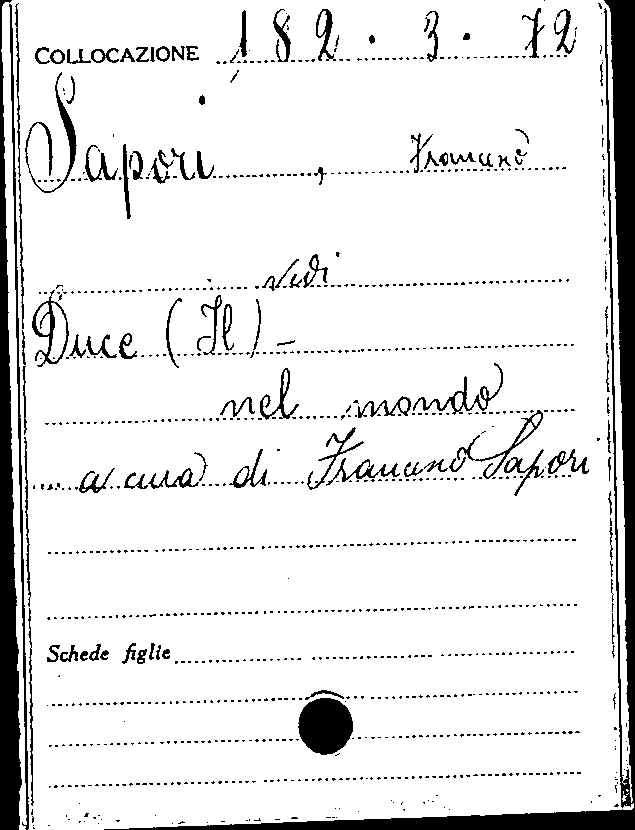 COLLOCAZIONE 182.3.72
Sapori, Francesco
vedi
Duce (Il) -
nel mondo
... a cura di Francesco Sapori
Schede figlie